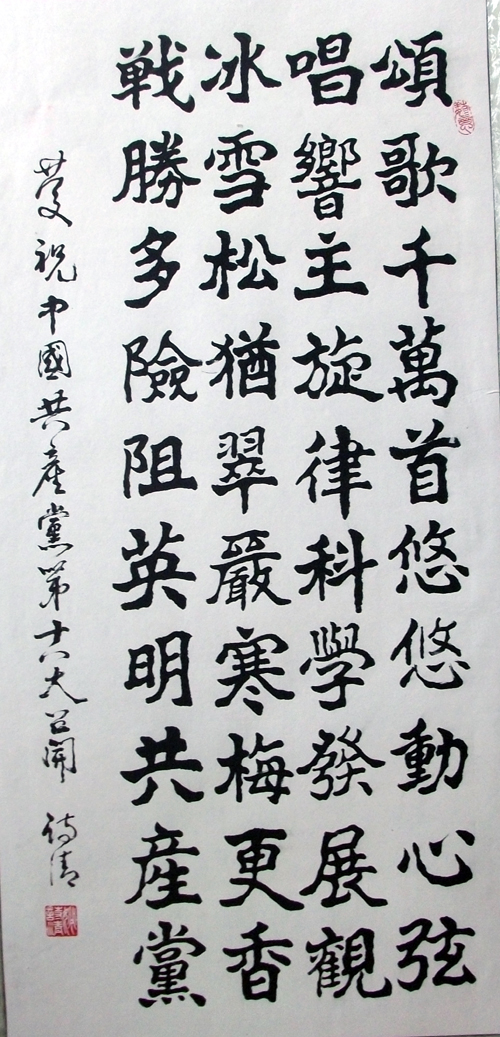 頌歌千萬首悠悠動心弦
唱響主旋律科學發展觀
冰雪松猶翠嚴寒梅更香
戦勝多險阻英明共產黨
慶祝中國共產黨第十八大召開 詩清